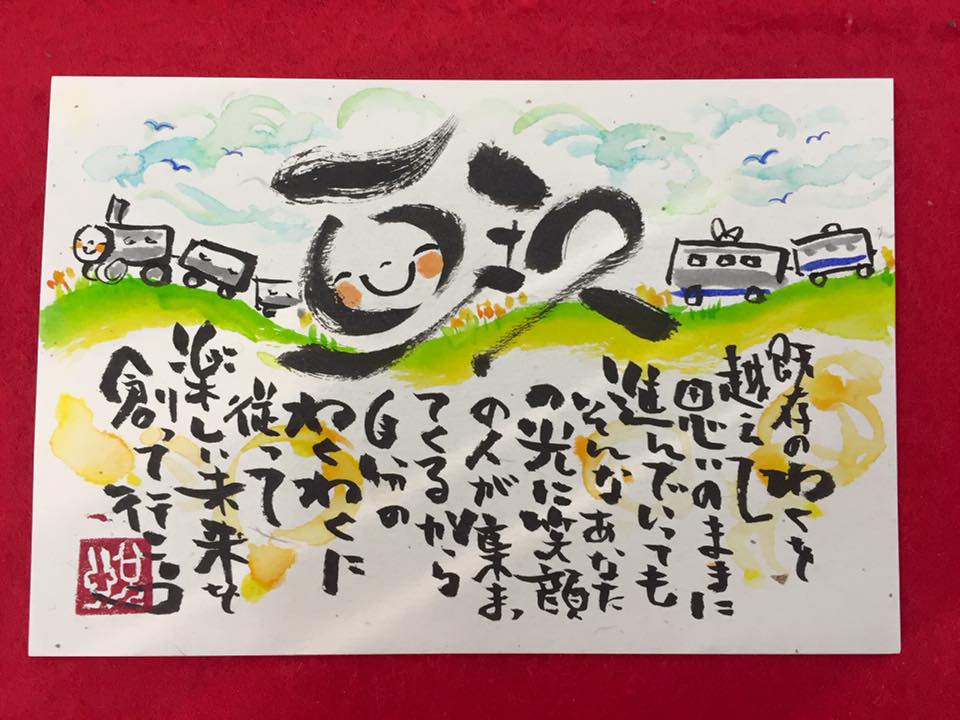 既存のわくを
越えて
思いのままに
進んでいっても
そんなあなた
の光に笑顔
の人が集まっ
てくるから
自分の
わくわくに
従って
楽しい未来を
創って行こう